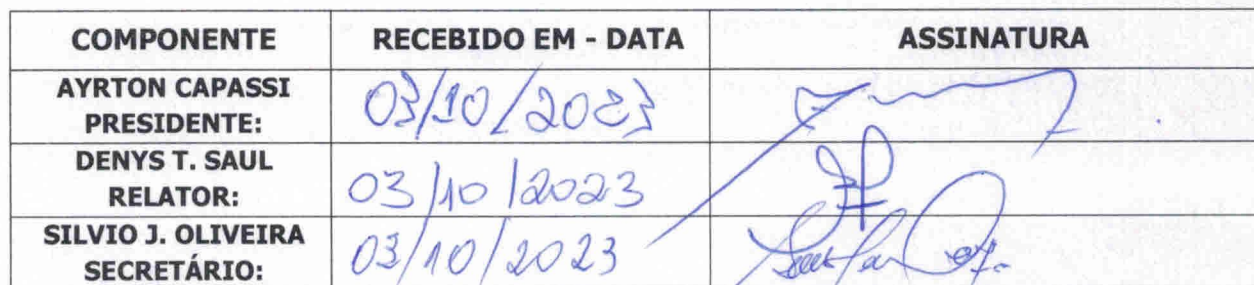 COMPONENTE RECEBIDO EM - DATA ASSINATURA
AYRTON CAPASSI
PRESIDENTE: 03/10/2023
DENYS T. SAUL
RELATOR: 03/10/2023
SILVIO J. OLIVEIRA
SECRETÁRIO: 03/10/2023